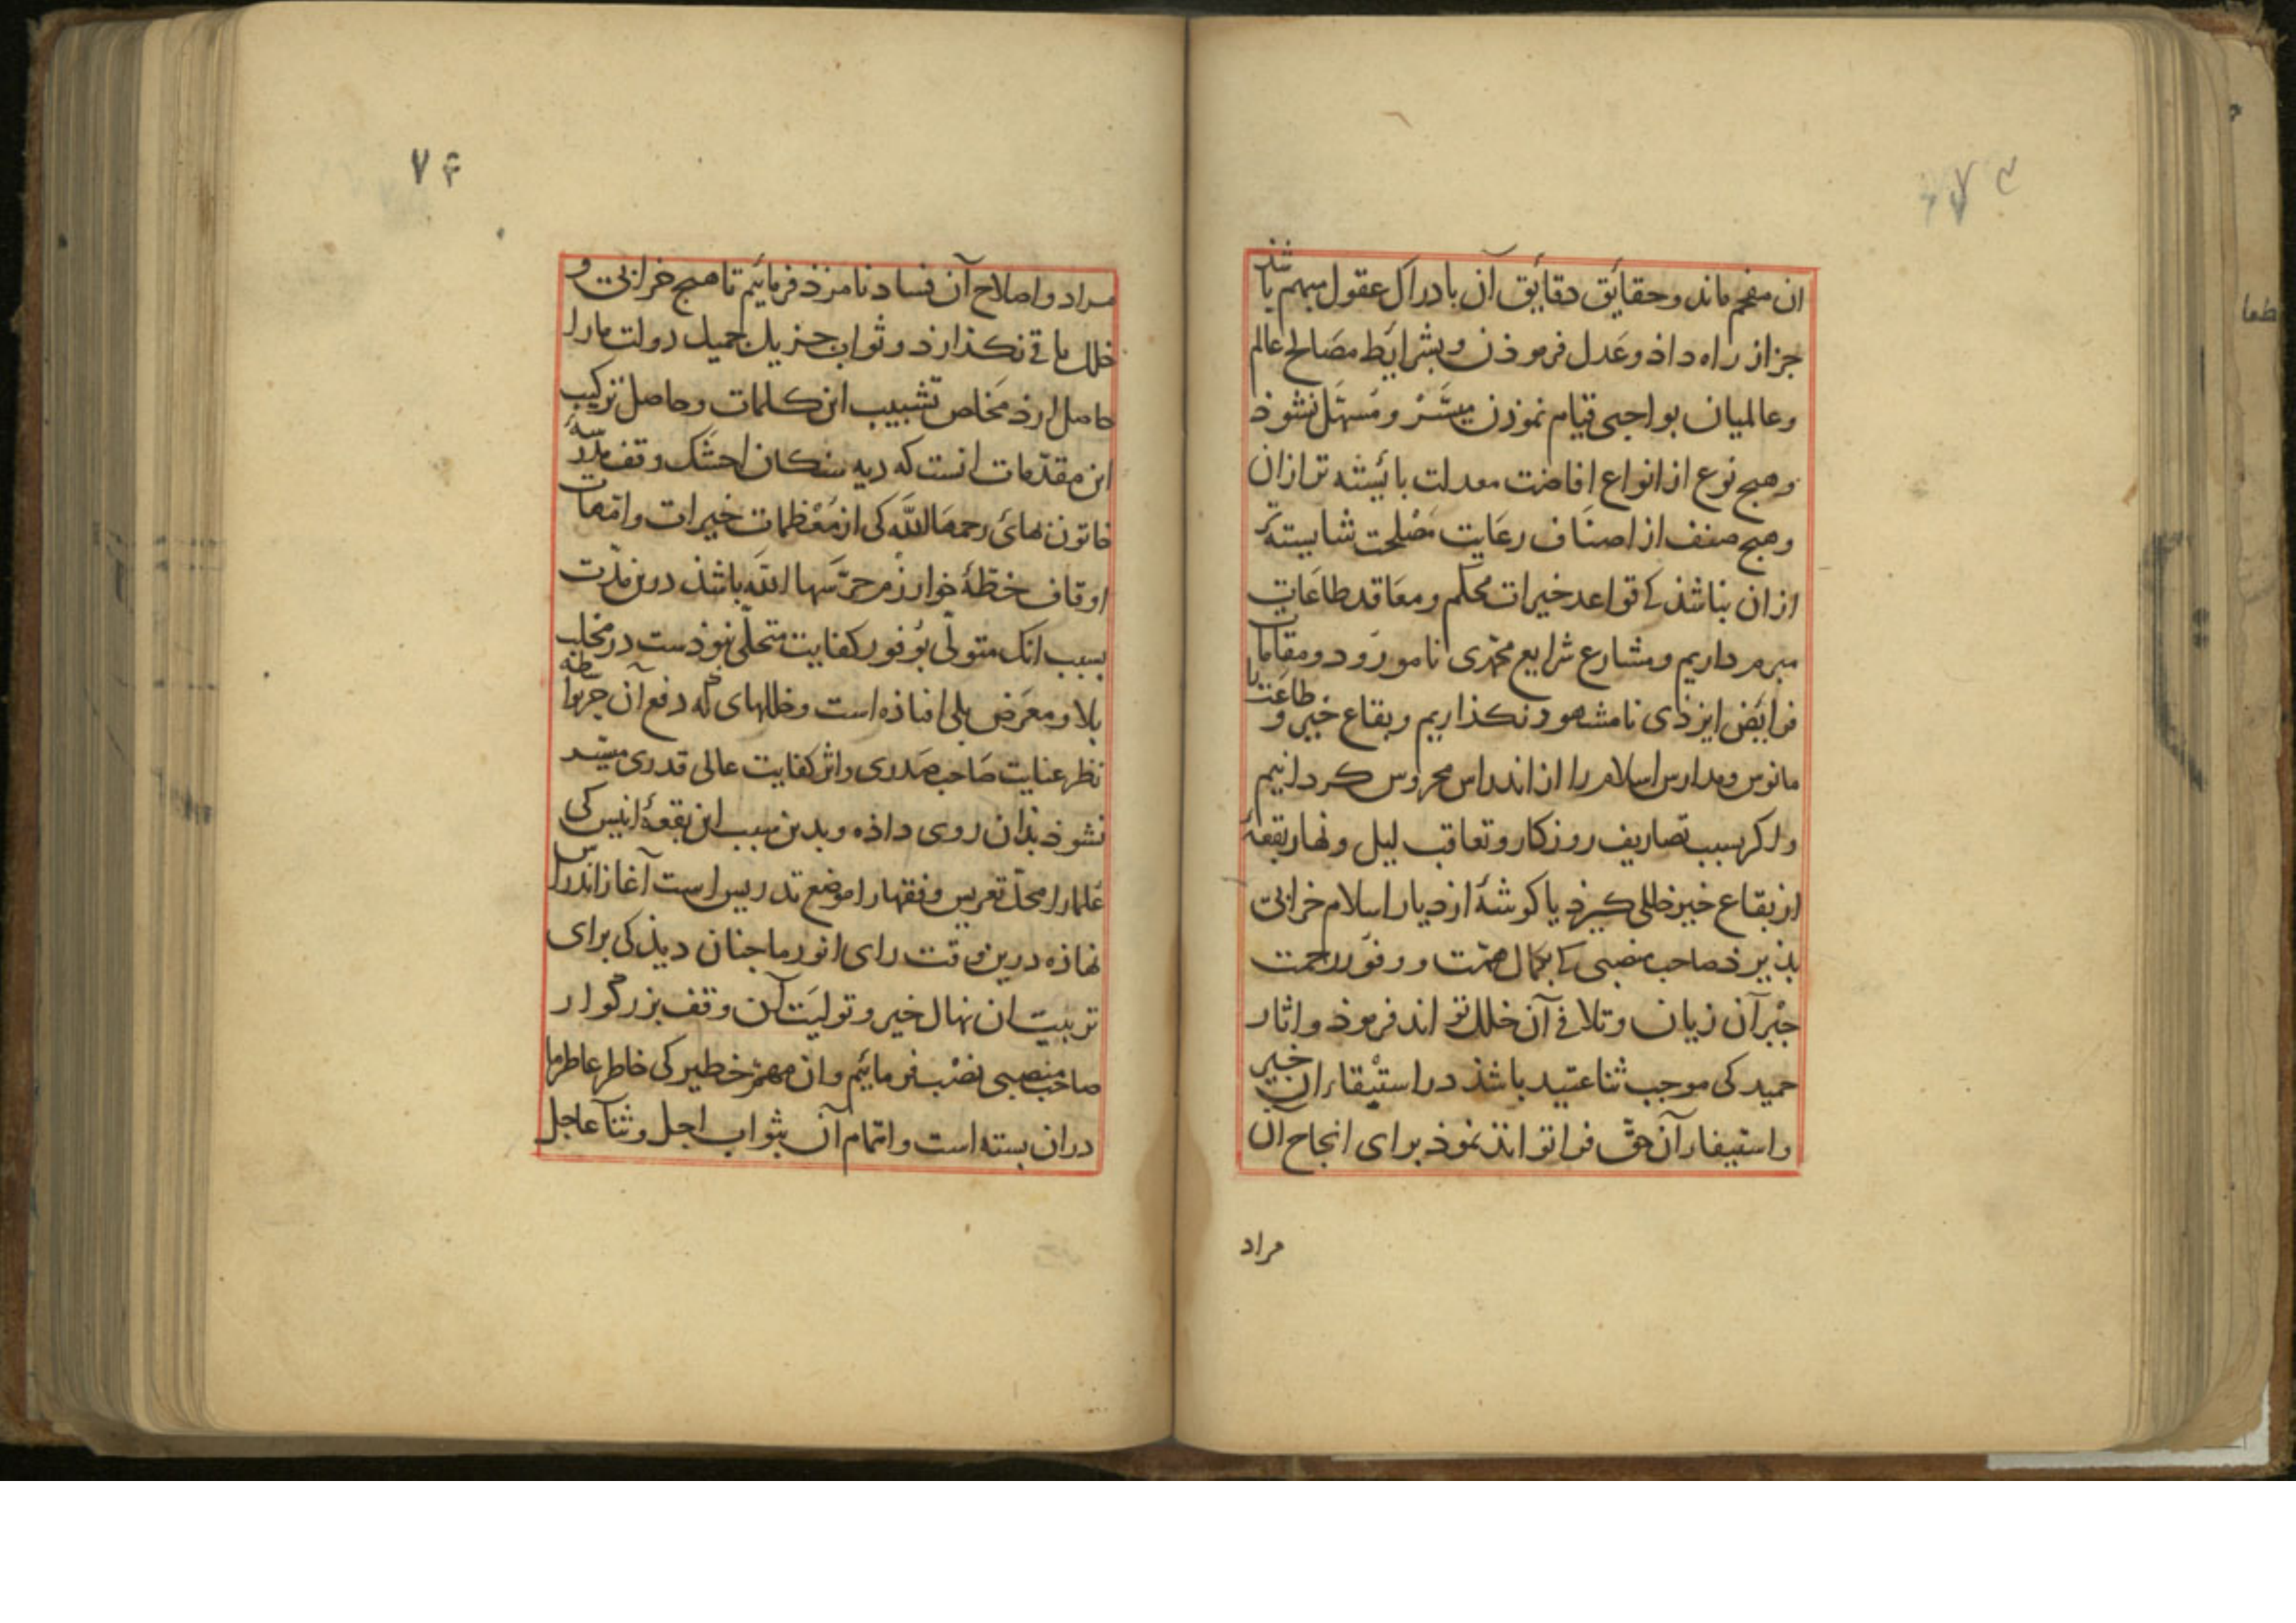 ان مفخم ماند و حقایق دقایق آن بادراک عقول مبهم باشد
جز از راه داذ و عدل فرموذن و بشرایط مصالح عالم
و عالمیان بواجبی قیام نموذن میسّر و مسهّل نشوذ
و هیچ نوع از انواع افاضت معدلت بائیسته تر از ان
و هیچ صنف از اصناف رعایت مصلحت شایسته تر
از ان نباشذ کی قواعد خیرات محکم و معاقد طاعات
مبرم داریم و مشارع شرایع محمّدی نامورود و مقامات
فرایض ایزذی نامشهود نکذاریم و بقاع خیر و طاعت را
مانوس و مدارس اسلام را از اندراس محروس کردانیم
و اکر بسبب تصاریف روزکار و تعاقب لیل و نهار بقعهٔ
از بقاع خیر خللی کیرذ یا کوشهٔ از دیار اسلام خرابی
بذیرذ صاحب منصبی کی بکمال همّت و وفور رحمت
جبر آن زیان و تلافی آن خلل تواند فرموذ و اثار
حمید کی موجب ثنا عتید باشذ در استبقاء ان خیر
و استیفاء آن حق فرا تواند نموذ برای انجاح آن
مراد
۷۴
مراد و اصلاح آن فساد نامزذ فرمائیم تا هیچ خرابی و
خلل باقی نکذارذ و ثواب جزیل جمیل دولت ما را
حاصل ارذ مخلص تشبیب این کلمات و حاصل ترکیب
این مقدّمات انست که دیه سنکان اخشک وقف مدرسهٔ
خاتون مهائ رحمها اللّه کی از معظمات خیرات و امّهات
اوقاف خطّهٔ خوارزم حرّسها اللّه باشذ درین مدّت
بسبب انک متولّی بوفور کفایت متحلّی نبوذست در مخلب
بلا و معرض بلی افتاذه است و خللهای که دفع آن جز بواسطه
نظر عنایت صاحب صدری و اثر کفایت عالی قدری میسّر
نشوذ بذان روی داذه و بدین سبب این بقعهٔ انیس کی
علما را محلّ تعریس و فقها را موضع تدریس است آغاز اندراس
نهاذه درین وقت رای انور ما چنان دیذ کی برای
تربیت ان نهال خیر و تولیت آن وقف بزرگوار
صاحب منصبی نصب فرمائیم و ان مهمّ خطیر کی خاطر عاطر ما
در ان بسته است و اتمام آن بثواب اجل و ثنآ عاجل